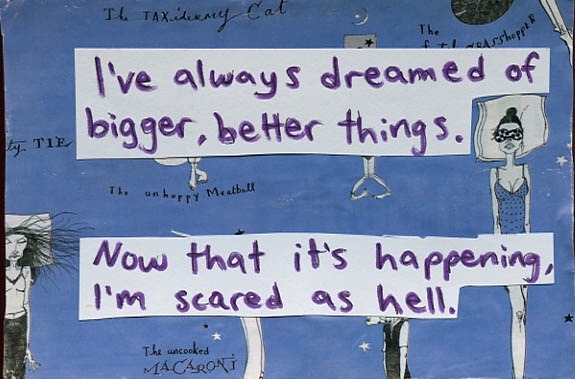 The TAXidermy Cat
The
GRASShoppER
I've always dreamed of
bigger, better things.
TIE
The unhappy Meatball
Now that it's happening,
I'm scared as hell.
The uncooked
MACARONI